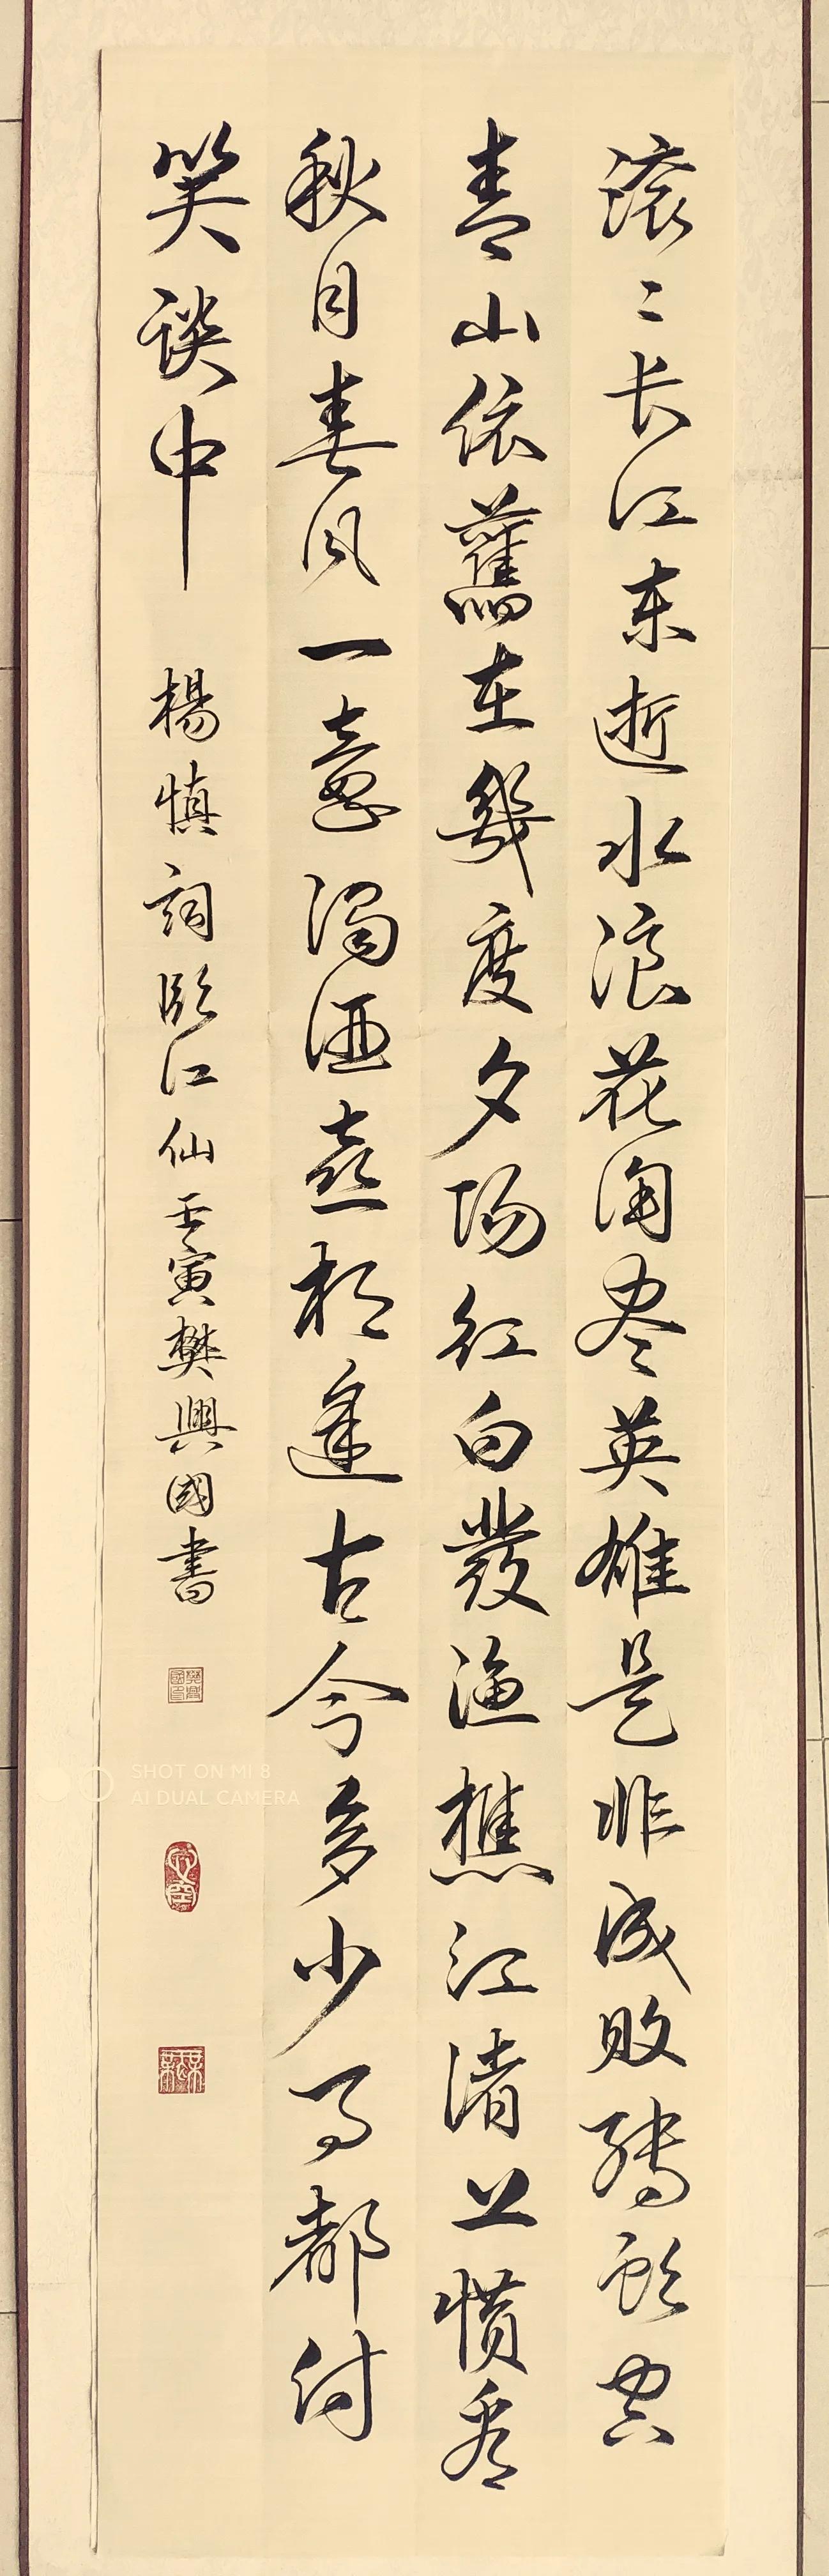 滚〻长江东逝水浪花淘尽英雄是非成败轉頭空
青山依舊在幾度夕陽红白發漁樵江渚上惯看
秋月春风一壺濁酒喜相逢古今多少事都付
笑談中
楊慎詞臨江仙壬寅樊興國書
SHOT ON MI 8
AI DUAL CAMERA